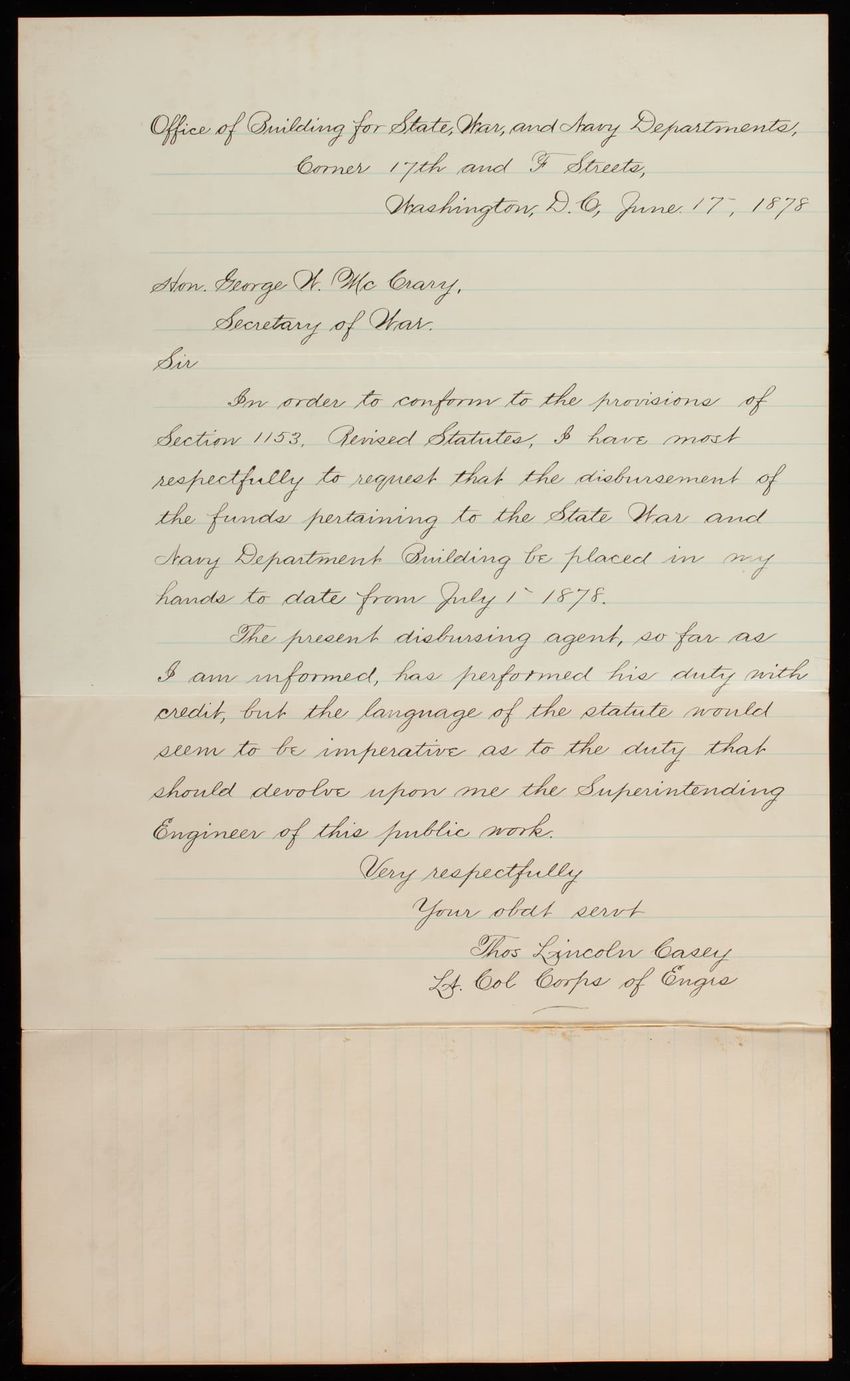 Office of Building for State, War, and Navy Departments,
Corner 17th and F Streets,
Washington, D.C, June. 17, 1878
Hon. George W. Mc Crary,
Secretary of War.
Sir
In order to conform to the provisions of
Section 1153, Revised Statutes, I have most
respectfully to request that the disbursement of
the funds pertaining to the State War and
Navy Department Building be placed in my
hands to date from July 1 1878.
The present disbursing agent, so far as
I am informed, has performed his duty with
credit, but the language of the statute would
seem to be imperative as to the duty that
should devolve upon me the Superintending
Engineer of this public work.
Very respectfully
Your obdt servt
Thos Lincoln Casey
Lt. Col Corps of Engrs